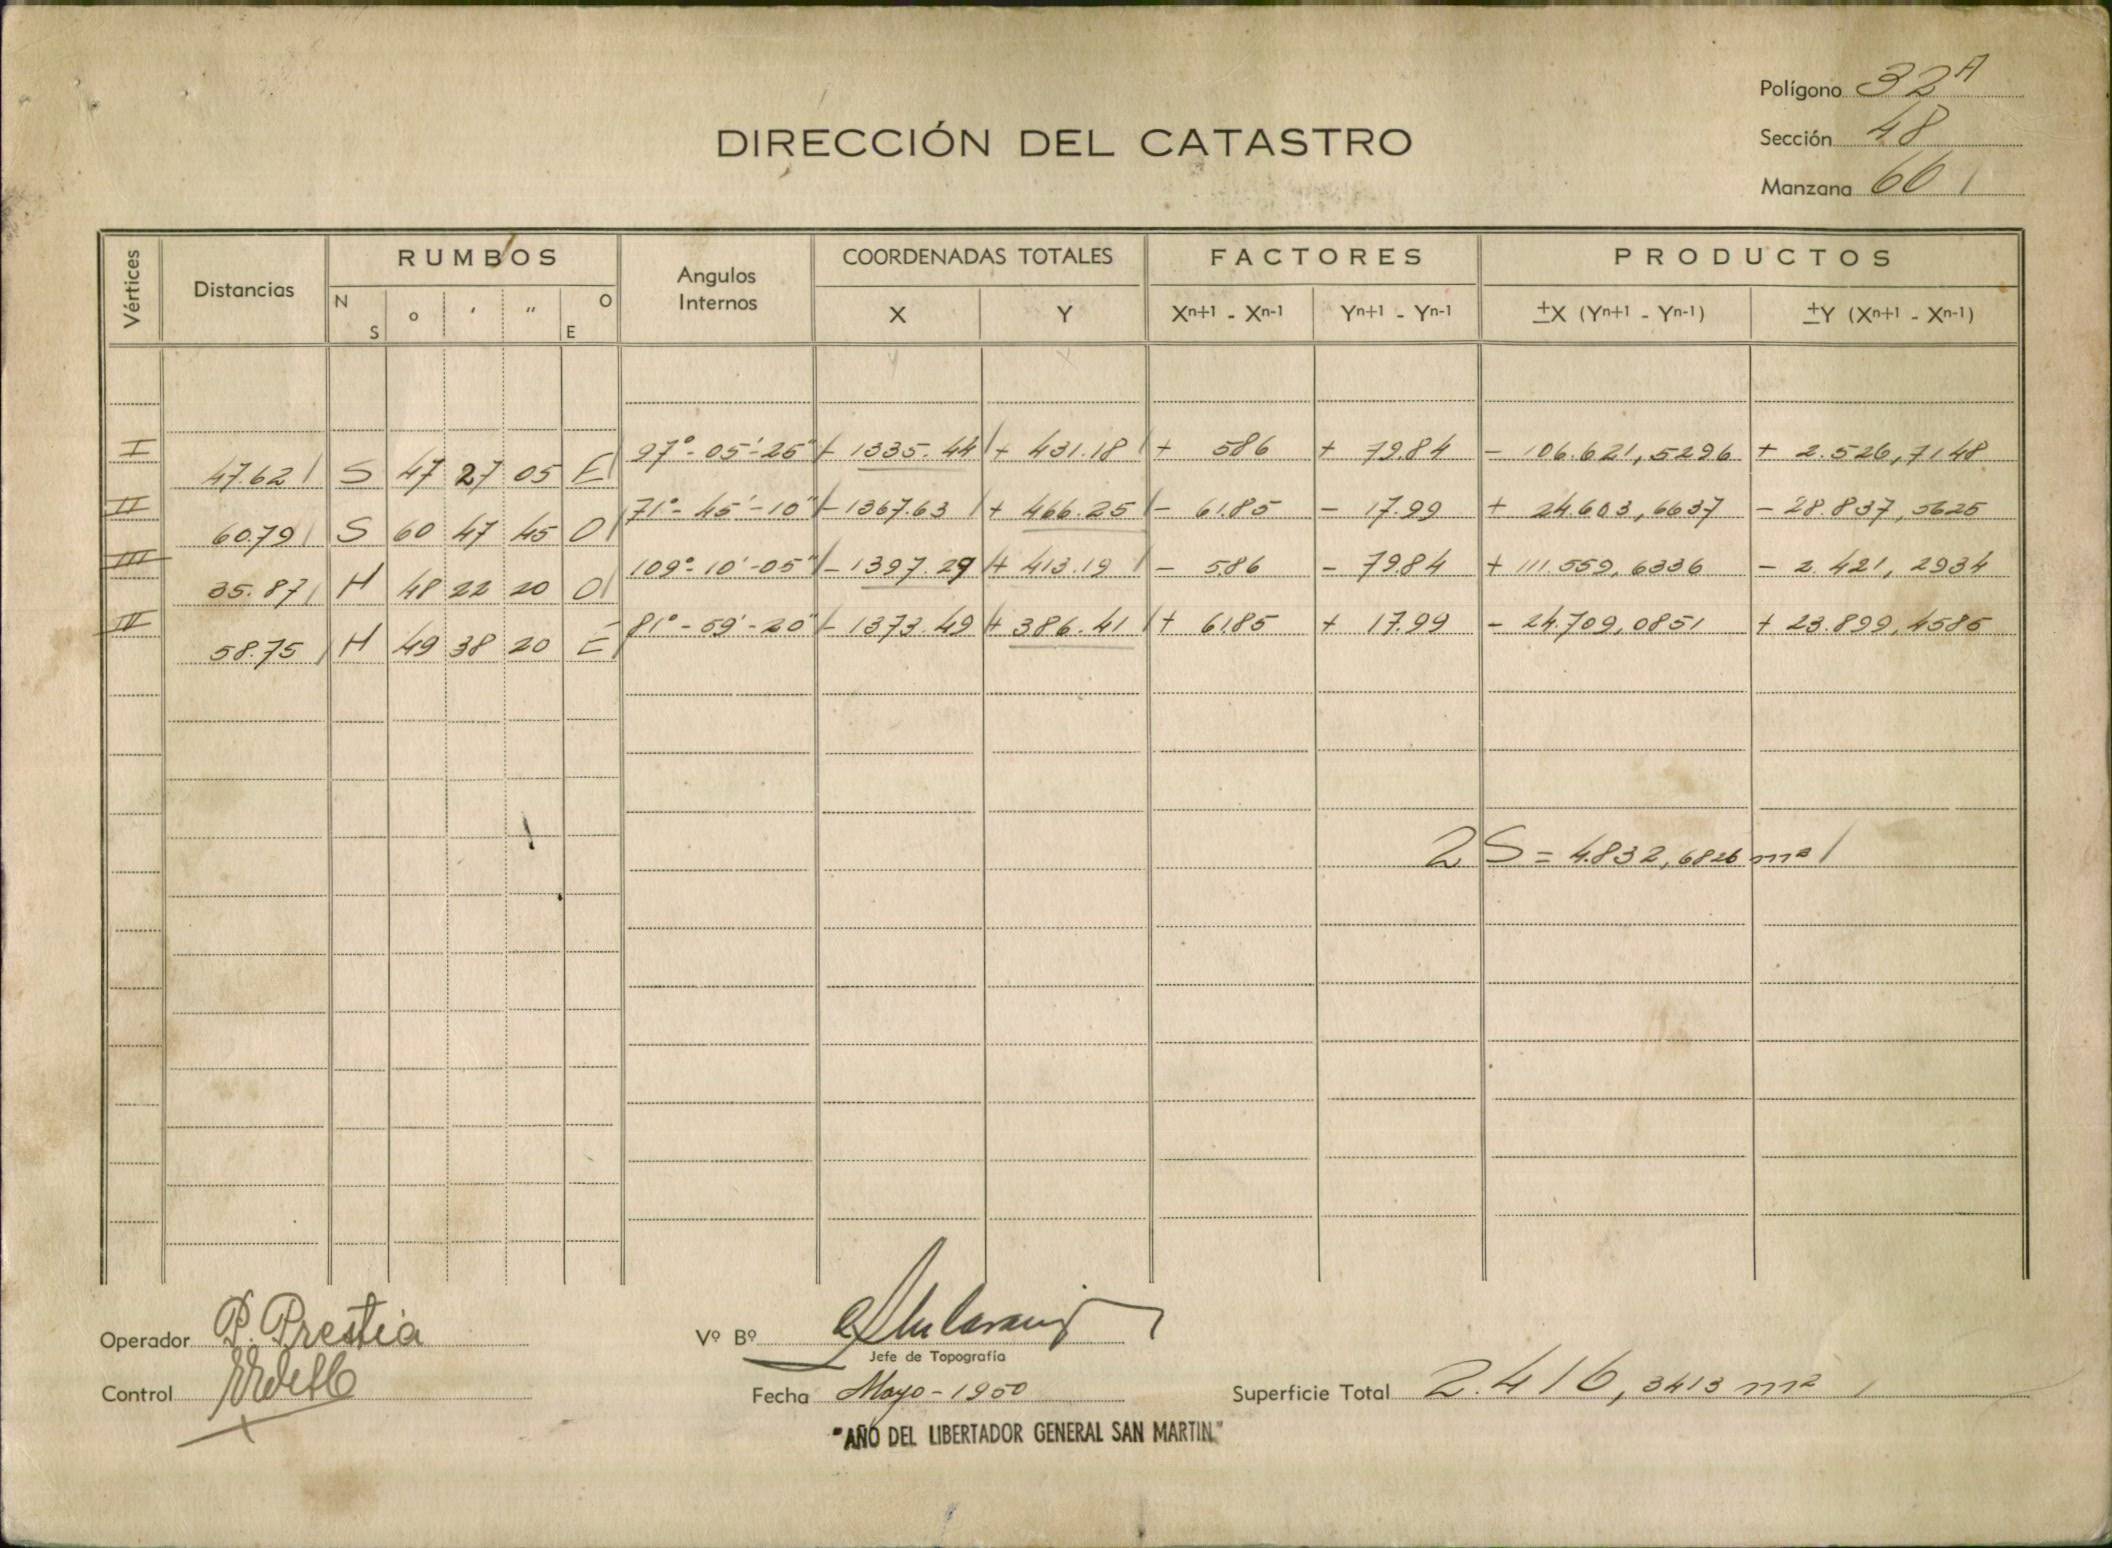 Polígono 32A
DIRECCIÓN DEL CATASTRO
Sección 48
Manzana 66
Vértices Distancias RUMBOS Angulos Internos COORDENADAS TOTALES FACTORES PRODUCTOS
N S o ′ ″ O E X Y Xn+1 - Xn-1 Yn+1 - Yn-1 ±X (Yn+1 - Yn-1) ±Y (Xn+1 - Xn-1)
I 97°-05'-25" - 1335.44 + 431.18 + 586 + 79.84 - 106.621,5296 + 2.526,7148
47.62 S 47 27 05 E
II 71°-45'-10" - 1367.63 + 466.25 - 61.85 - 17.99 + 24.603,6637 - 28.837,5625
60.79 S 60 47 45 O
III 109°-10'-05" - 1397.29 + 413.19 - 586 - 79.84 + 111.559,6336 - 2.421,2934
35.87 N 48 22 20 O
IV 81°-59'-20" - 1373.49 + 386.41 + 61.85 + 17.99 - 24.709,0851 + 23.899,4585
58.75 N 49 38 20 E
2 S = 4.832,6826 m2
Operador P. Prestia Vº Bº
Jefe de Topografía
Control Fecha Mayo-1950 Superficie Total 2.416,3413 m2
"AÑO DEL LIBERTADOR GENERAL SAN MARTIN."